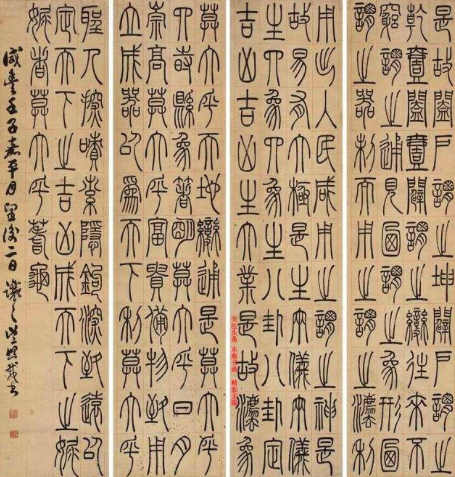 是故闔戶謂之坤闢戶謂之
乾壹闔壹闢謂之變往來不
窮謂之通見乃謂之象形乃
謂之器制而用之謂之灋利
用出入民咸用之謂之神是
故易有大極是生兩儀兩儀
生四象四象生八卦八卦定
吉凶吉凶生大業是故灋象
莫大乎天地變通是莫大乎
四時縣象箸明莫大乎日月
崇高莫大乎富貴備物致用
立成器以為天下利莫大乎
聖人探嘖索隱鉤深致遠以
定天下之吉凶成天下之娓
娓者莫大乎蓍龜
咸豐壬子嘉平月望後二日讓之吳熙載書